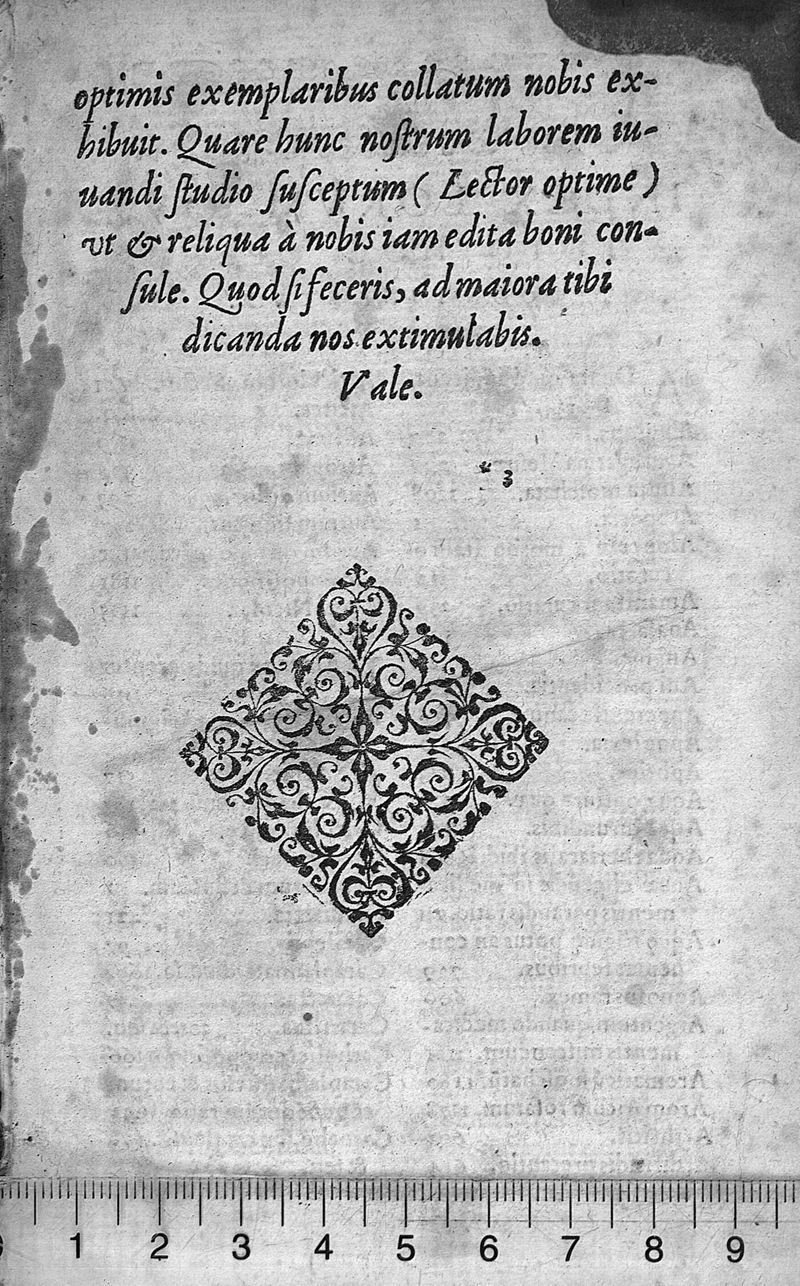 optimis exemplaribus collatum nobis ex-
hibuit. Quare hunc nostrum laborem iu-
uandi studio susceptum ( Lector optime )
vt & reliqua à nobis iam edita boni con-
sule. Quod si feceris, ad maiora tibi
dicanda nos extimulabis.
Vale.
* 3
1 2 3 4 5 6 7 8 9